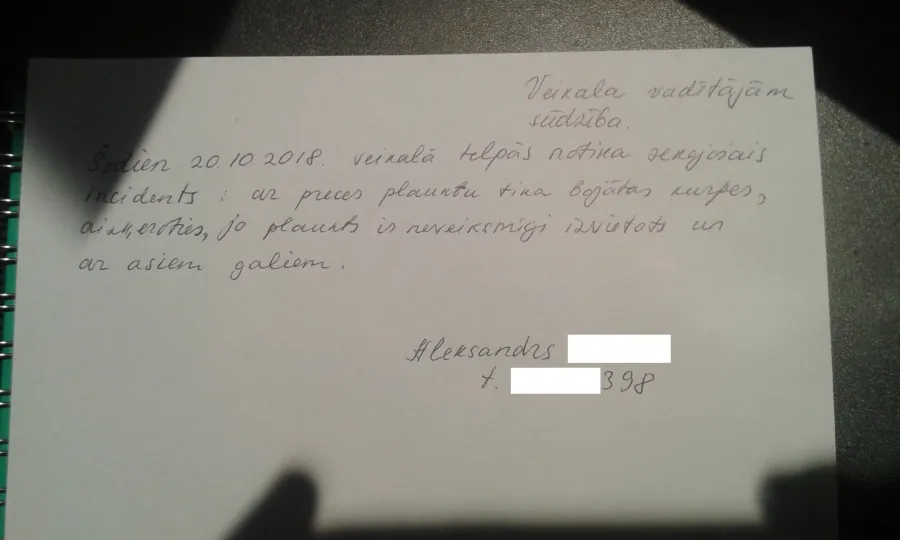 Veikala vadītājām
sūdzība.
Šodien 20.10.2018. veikalā telpās notika sekojošais
incidents : ar preces plauktu tika bojātas kurpes,
aizķeroties, jo plaukts ir neveiksmīgi izvietots un
ar asiem galiem.
Aleksandrs
t. 398